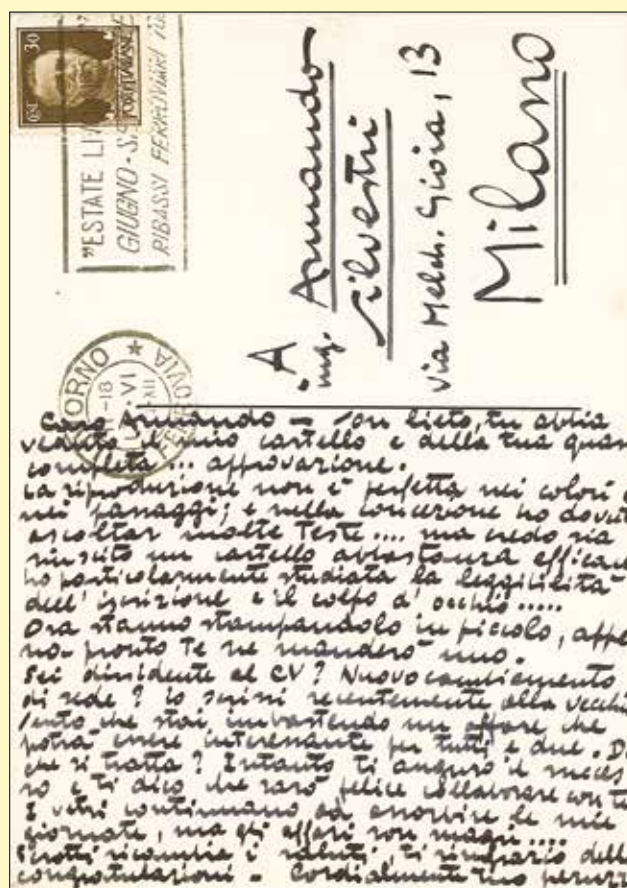 30
"ESTATE LIV
GIUGNO - S
RIBASSI FERROVIARI
A
ing. Armando
Silvestri
via Melch. Gioia, 13
Milano
ORNO
-18
VI
XII
FERROVIA
Caro Armando – Son lieto, tu abbia
veduto il mio cartello e della tua quasi
completa... approvazione.
La riproduzione non è perfetta nei colori e
nei passaggi; e nella concezione ho dovuto
ascoltar molte teste.... ma credo sia
riuscito un cartello abbastanza efficace
ho particolarmente studiata la leggibilità
dell'iscrizione e il colpo d'occhio.....
Ora stanno stampandolo in piccolo, appe
na pronto te ne manderò uno.
Sei dissidente al CV? Nuovo cambiamento
di sede? io scrissi recentemente alla vecchia
Sento che stai imbastendo un affare che
potrà essere interessante per tutti e due. Di
che si tratta? Intanto ti auguro il succes
so e ti dico che sarò felice collaborare con te
I vetri continuano ad assorbire le mie
giornate, ma gli affari son magri....
ricambia i saluti, ti ringrazio delle
congratulazioni – Cordialmente tuo